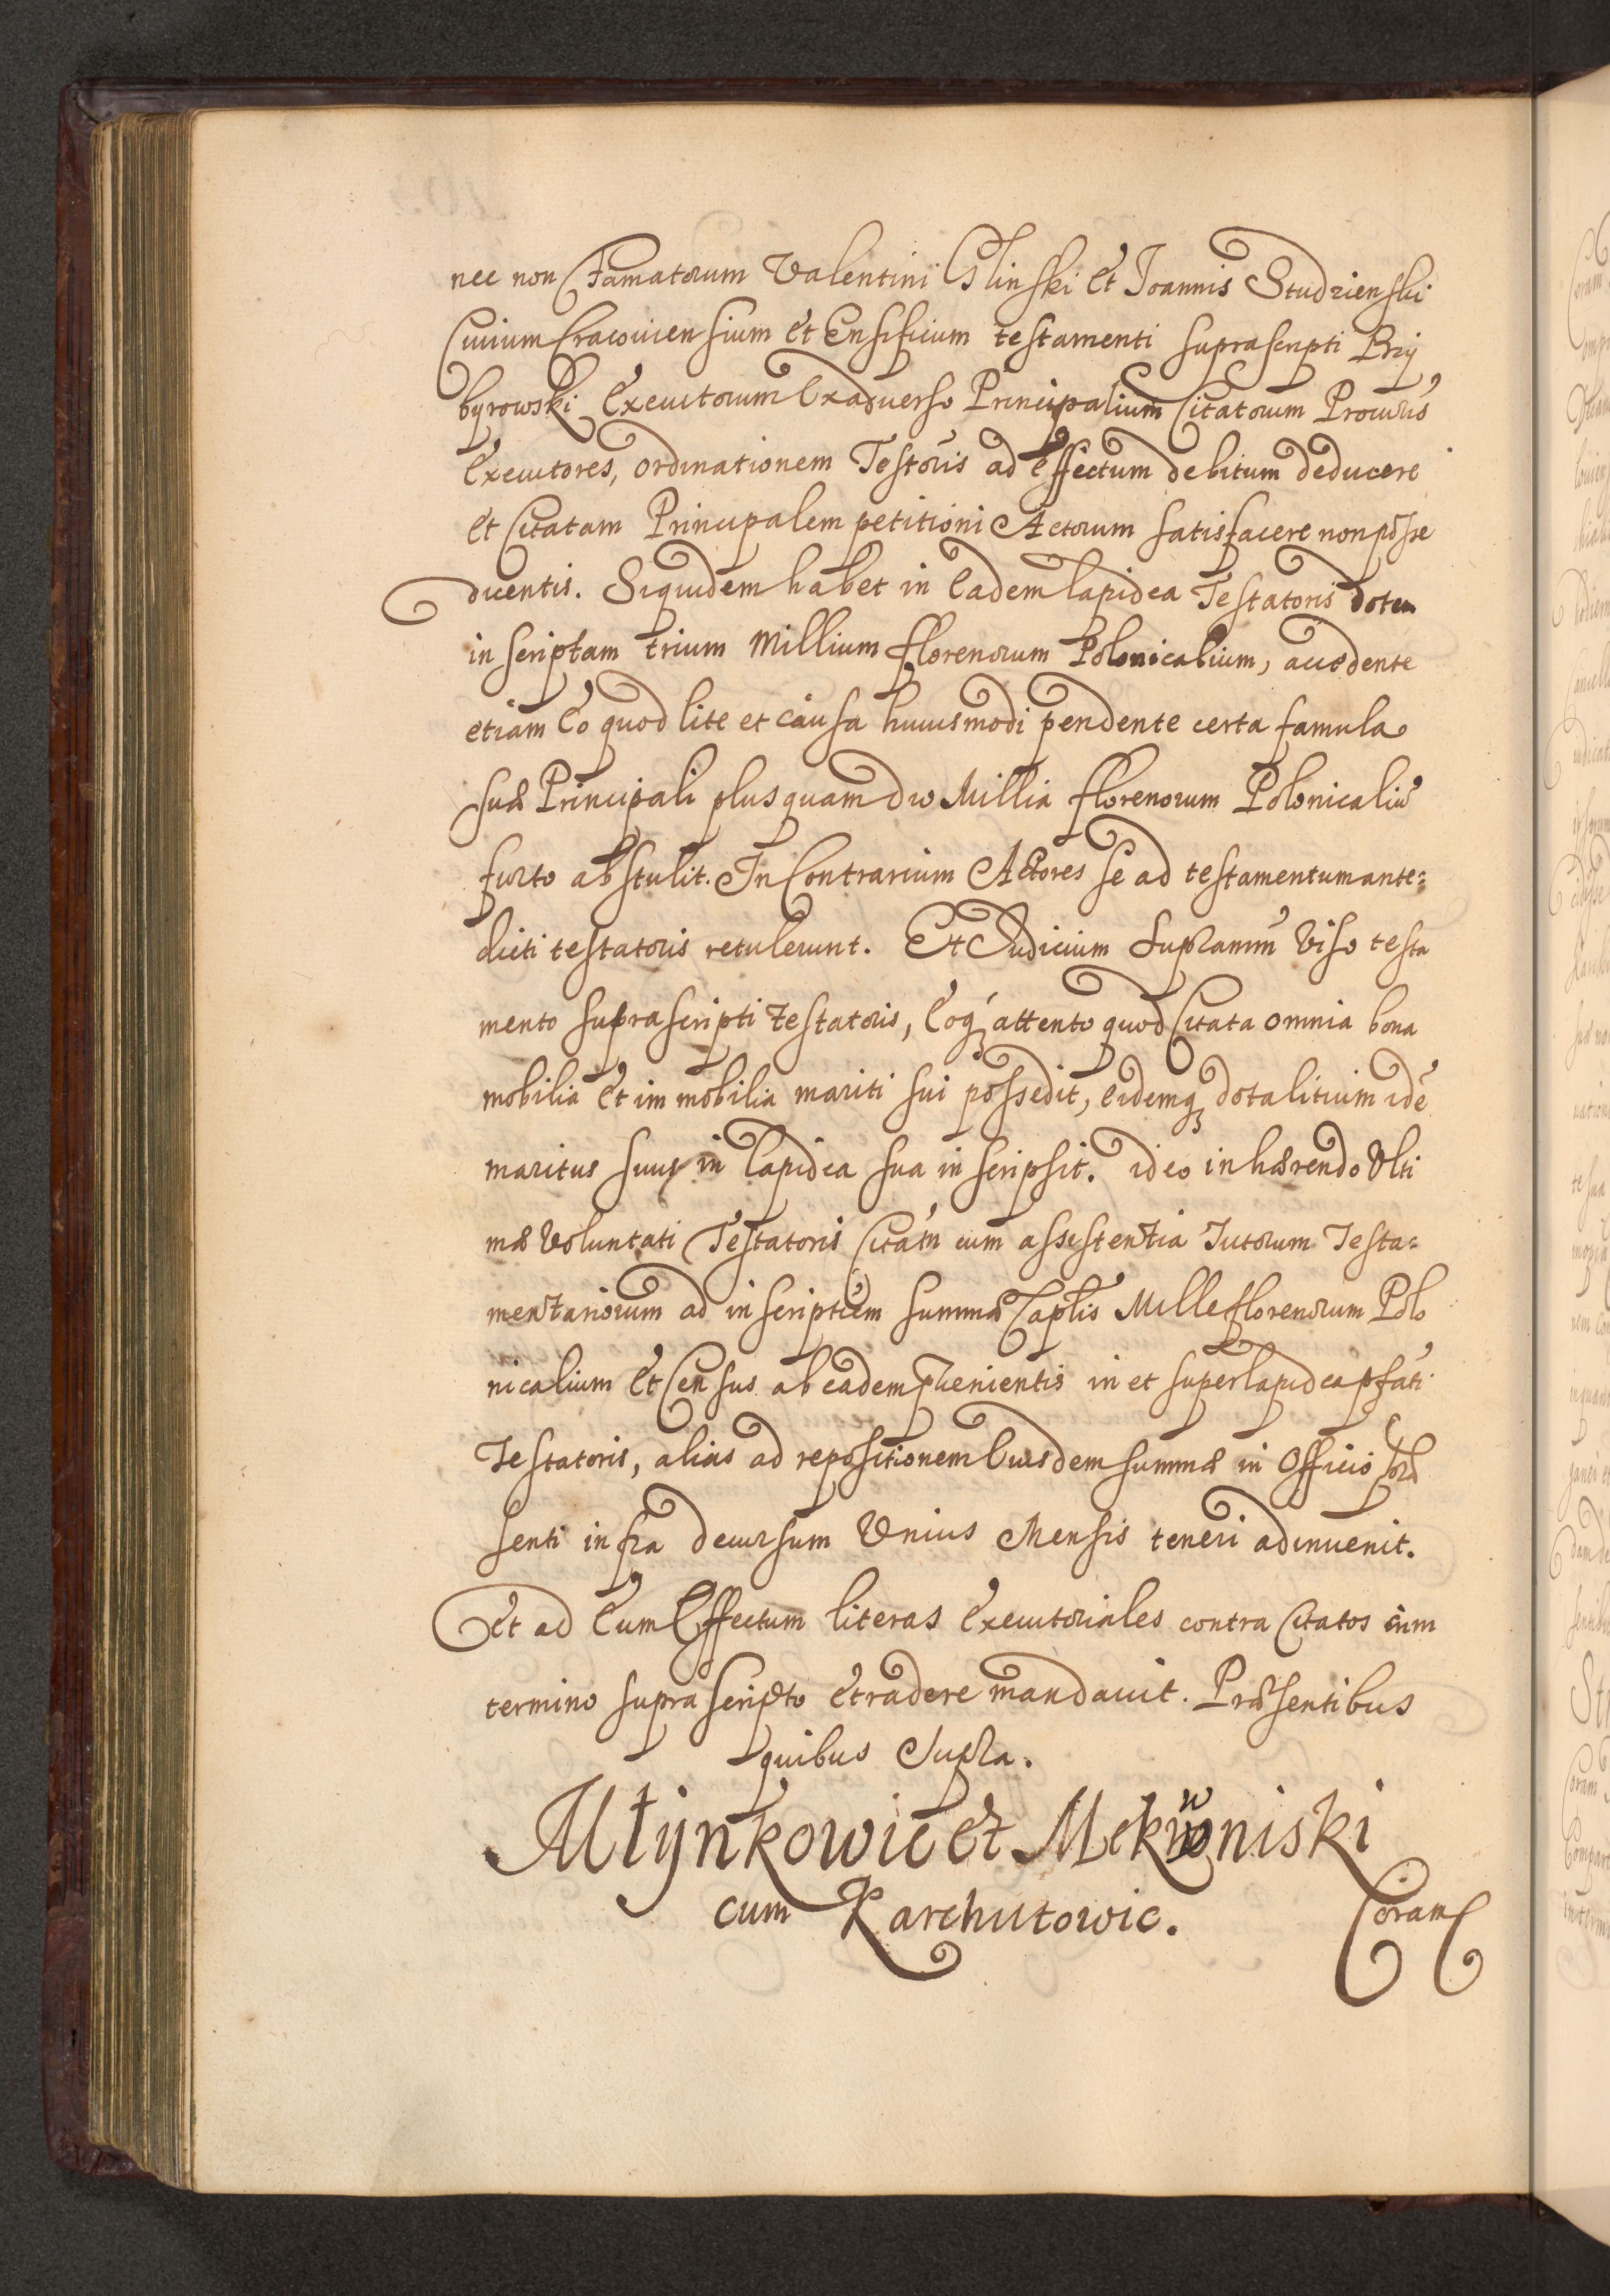 nec non Famatorum Valentini Glinski et Joannis Studzienski
Civium Cracovien sium et Ensificium testamenti suprascripti Brzy
byrowski Executorum Exadverso Principalium Citatorum Procuris
Executores, ordinationem Testoris ad effectum debitum deducere
et Citatam Principalem petitioni Actorum satisfacere non posse
ducentis. Siquidem habet in Eadem lapidea Testatoris dotem
in scriptam trium Millium florenorum Polonicalium, accedente
etiam Eo quod lite et causa huiusmodi pendente certa famula
suæ Principali plusquam duo Millia florenorum Polonicaliu
furto abstulit. In Contrarium Actores se ad testamentum ante=
dicti testatoris retulerunt. Et Judicium Supramm Viso testa
mento suprascripti testatoris, Eoq attento quod Citata omnia bona
mobilia Et im mobilia mariti sui possedit, eidemq dotalitium ide
maritus suus in lapidea sua in scripsit. ideo in hærendo Ulti
mæ Voluntati Testatoris Citatm cum assistentia Tutorum Testa=
mentariorum ad in scriptem summæ Captis Mille florenorum Polo
nicalium Et Census ab eadem pvenientis in et super lapidea pfati
Testatoris, alias ad repositionem Eiusdem summæ in Officio
senti infra decursum Unius Mensis teneri adinvenit.
Et ad Eum Effectum literas Executoriales contra Citatos cum
termino supra scripto Etradere mandavit. Præsentibus
quibus Supra.
Młynkowic et Mekwinski
cum Karchutowic.
Coram